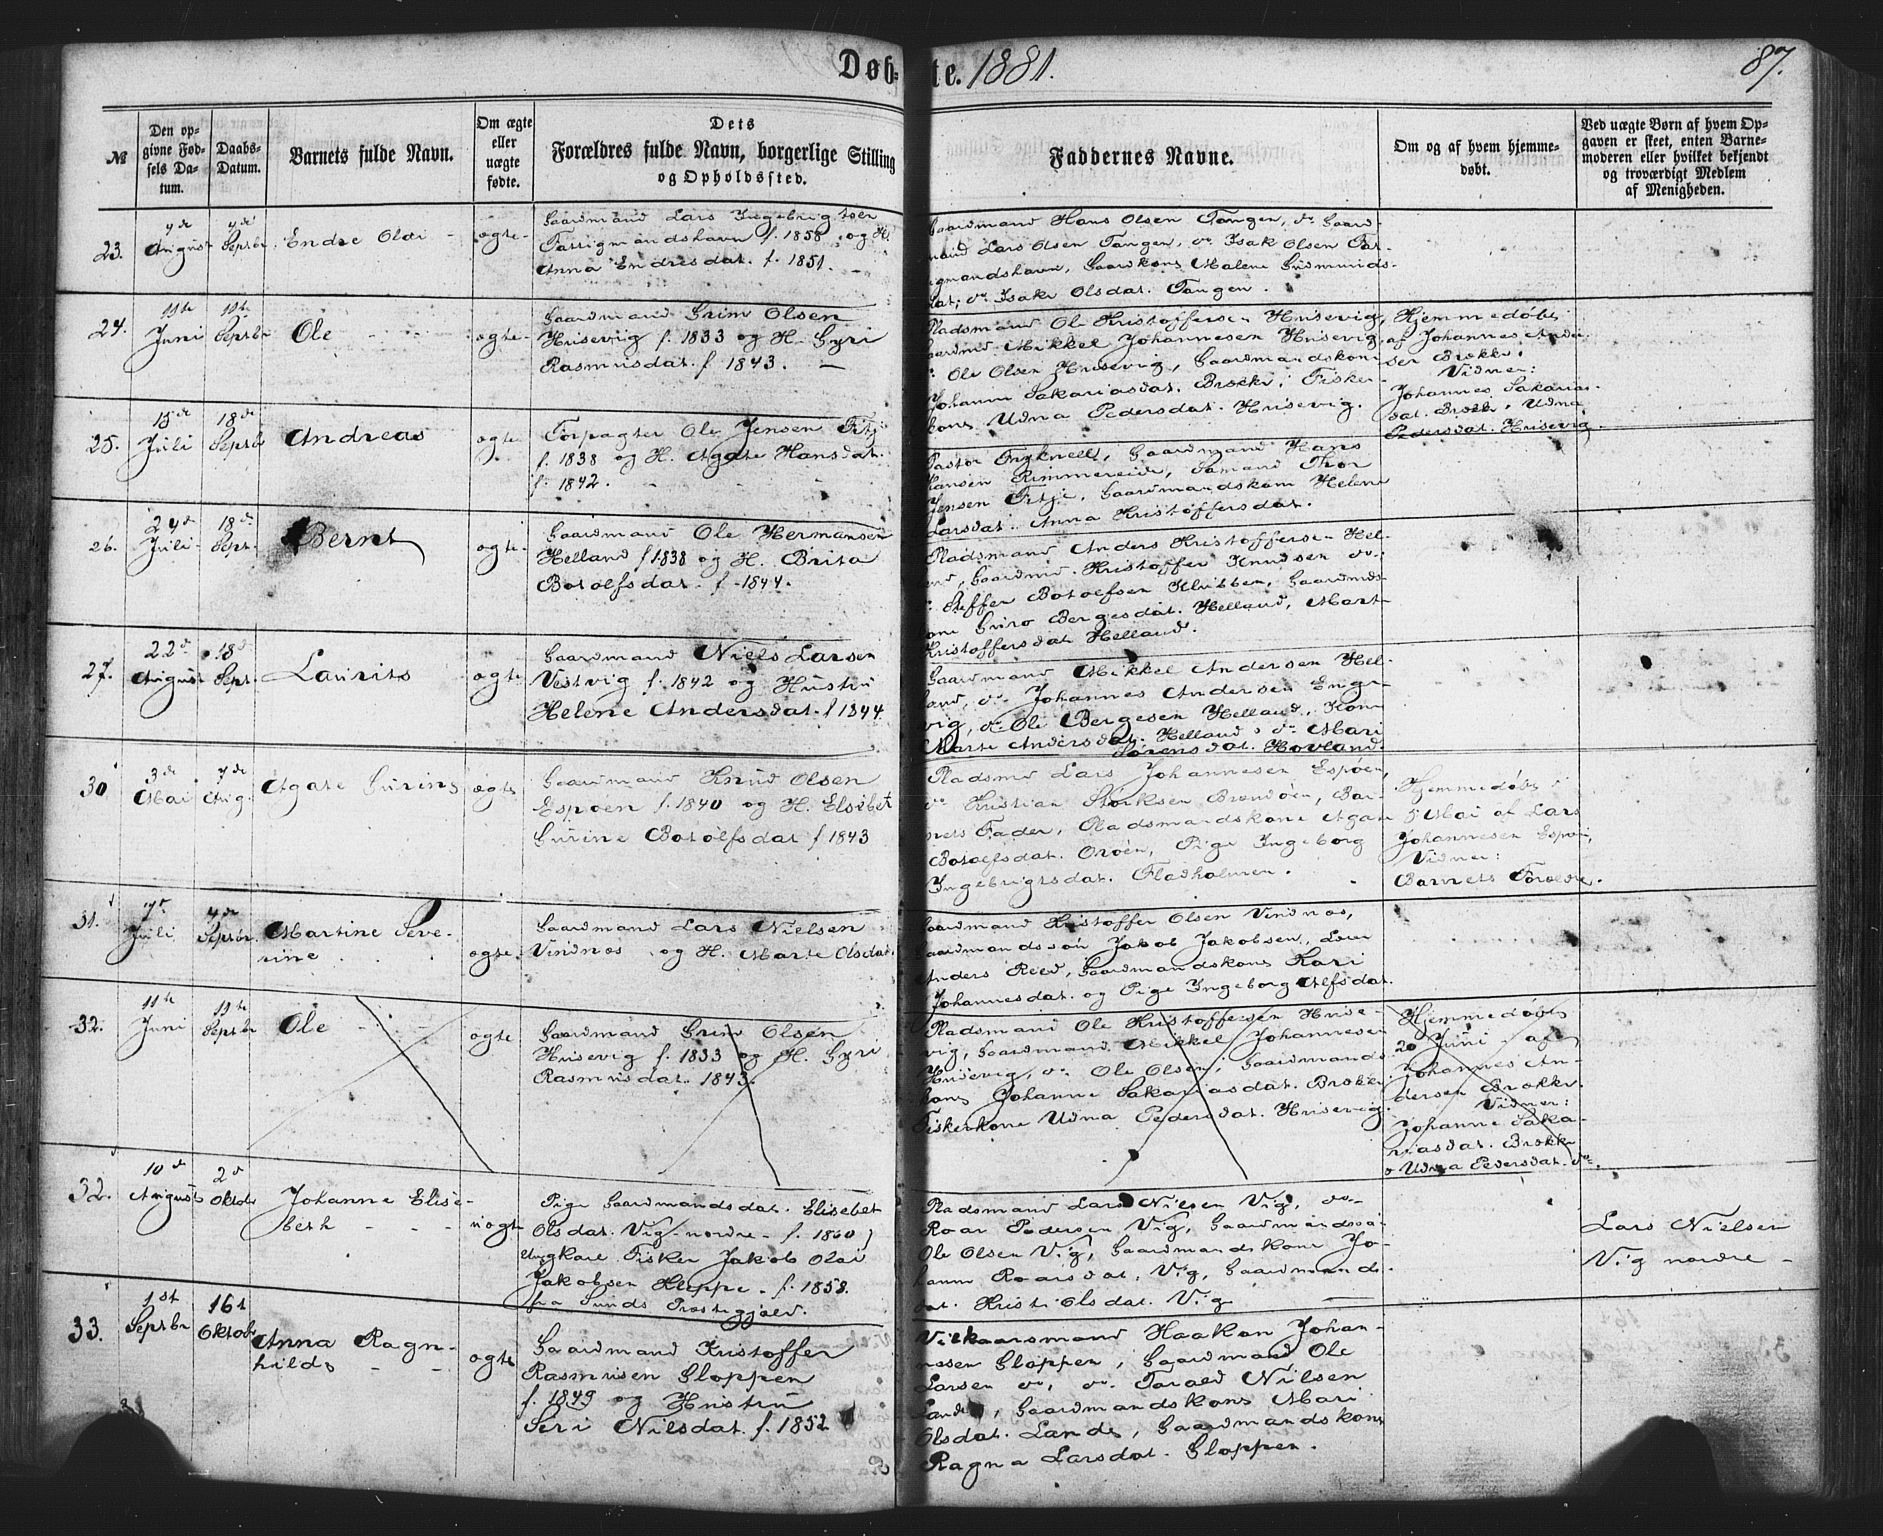 Døb- te. 1881. 87.
№
Den op-
givne Fød-
sels Da-
tum.
Daabs-
Datum.
Barnets fulde Navn.
Om ægte
eller
uægte
fødte.
Dets
Forældres fulde Navn, borgerlige Stilling
og Opholdssted.
Faddernes Navne.
Om og af hvem hjemme-
døbt.
Ved uægte Børn af hvem Op-
gaven er skeet, enten Barne-
moderen eller hvilket bekjendt
og troværdigt Medlem
af Menigheden.
23.
August
4de
Septbr
Endre Olai
ægte
Gaardmand Lars Ingebrigtsen
Fattigmandshavn f. 1858 og H.
Anna Endresdat. f. 1851.
Gaardmand Hans Olsen Tangen, do Gaard-
mand Lars Olsen Tangen, do Isak Olsen Fat-
tigmandshavn, Gaardkone Malene Gudmunds-
dat; do Isak Olsdat. Tangen.
24.
11te
Juni
11te
Septbr
Ole
ægte
Gaardmand Grim Olsen
Husevig f. 1833 og H. Gyri
Rasmusdat. f 1843.
Pladsmand Ole Kristoffersen Husevig,
Gaardmd Mikkel Johannesen Husevig,
do Ole Olsen Husevig, Gaardmandskone
Johanne Sakariasdat. Brække, Fisker-
kone Udna Pedersdat. Husevig.
Hjemmedøbt
af Johannes Ander-
sen Brække.
Vidner:
Johannes Sakarias-
dat. Brække, Udna
Pedersdat. Husevig.
25.
15de
Juli
18de
Septbr
Andreas
ægte
Forpagter Ole Jensen Fitje
f. 1838 og H. Agate Hansdat.
f. 1842.
Pastor Gryknell, Gaardmand Hans
Hansen Rimmereide, Sømand Thor
Jensen Fitje, Gaardmandskone Helene
Larsdat. Anna Kristoffersdat.
26.
24de
Juli
18de
Sept.
Bernt
ægte
Gaardmand Ole Hermansen
Helland f 1838 og H. Brita
Botolfsdat. f. 1844.
Pladsmand Anders Kristoffersen Hel-
land, Gaardmd. Kristoffer Knudsen do
do Steffer Botolfsen Klubben, Gaardmds-
kone Guro Bergesdat. Helland, Mart-
Kristoffersdat Helland.
27.
22de
August
18de
Sept.
Laurits
ægte
Gaardmand Niels Larsen
Vestvig f. 1842 og Hustru
Helene Andersdat. f 1844.
Gaardmand Mikkel Andersen Hel-
land, do Johannes Andersen Enge-
vig, do Ole Bergesen Helland, Kone
Marte Andersdat. Helland, do Mari
Sørensdat. Hovland.
30
3de
Mai
7de
Aug.
Agate Gurine
ægte
Gaardmand Knud Olsen
Espøen f. 1840 og H. Elsebet
Gurine Botolfsdat f 1843
Pladsmd Lars Johannesen Espøen,
do Kristian Størksen Brandøen, Bar-
nets Fader, Pladsmandskone Agate
Botolfsdat. Orøen, Pige Ingeborg
Ingebrigtsdat. Fladholmen.
Hjemmedøbt
5 Mai af Lars
Johannesen Espøen,
Vidner:
Barnets Forældre.
31.
7de
Juli
4de
Septbr.
Martine Seve-
rine
ægte
Gaardmand Lars Nielsen
Vindnæs og H. Marte Olsdat.
Gaardmand Kristoffer Olsen Vindnæs,
Gaardmandssøn Jakob Jakobsen,
Anders Reed, Gaardmandskone Kari
Johannesdat. og Pige Ingeborg Alfsdat.
32.
11te
Juni
11te
Septbr
Ole
ægte
Gaardmand Grim Olsen
Husevig f. 1833 og H. Gyri
Rasmusdat. 1843.
Pladsmand Ole Kristoffersen Huse-
vig, Gaardmand Mikkel Johannesen
Husevig, do Ole Olsen, Gaardmands-
kone Johanne Sakariasdat. Brække
Fiskerkone Udna Pedersdat. Husevig.
Hjemmedøbt
20 Juni af
Johannes An-
dersen Brække.
Vidner:
Johanne Saka-
riasdat. Brække
o Udna Pedersdat. do.
32.
10de
August
2de
Oktob
Johanne Elise-
beth
uægte
Pige Gaardmandsdat. Elisebet
Olsdat. Vig nordre f. 1860
Ungkarl Fisker Jakob Olai
Jakobsen Kleppe. f. 1858.
fra Sunds Præstegjæld.
Pladsmand Lars Nielsen Vig, do
Roar Pedersen Vig, Gaardmandssøn
Ole Olsen Vig, Gaardmandskone Jo-
hanne Roarsdat. Vig, Gaardmands-
dat. Kristi Olsdat. Vig
Lars Nielsen
Vig nordre
33.
1st
Septbr
16t
Oktobr
Anna Ragn-
hilds
ægte
Gaardmand Kristoffer
Rasmusen Gloppen
f. 1849 og Hustru
Seri Nilsdat. f. 1852
Vilkaarsmand Haakon Johan-
nesen Gloppen, Gaardmand Ole
Larsen do, do Tarald Nilsen
Lande, Gaardmandskone Mari
Olsdat. Lande, Gaardmandskone
Ragna Larsdat. Gloppen.